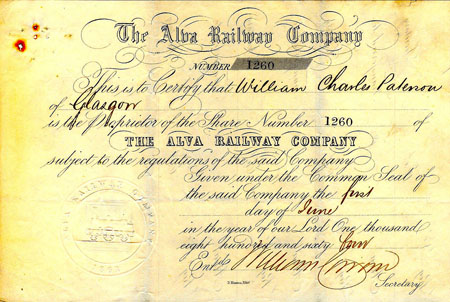 The Alva Railway Company
NUMBER 1260
This is to Certify that William Charles Paterson
of Glasgow
is the Proprietor of the Share Number 1260 of
THE ALVA RAILWAY COMPANY
subject to the regulations of the said Company
Given under the Common Seal of
the said Company the first
day of June
in the year of our Lord One thousand
eight hundred and sixty four
Entd. William
Secretary